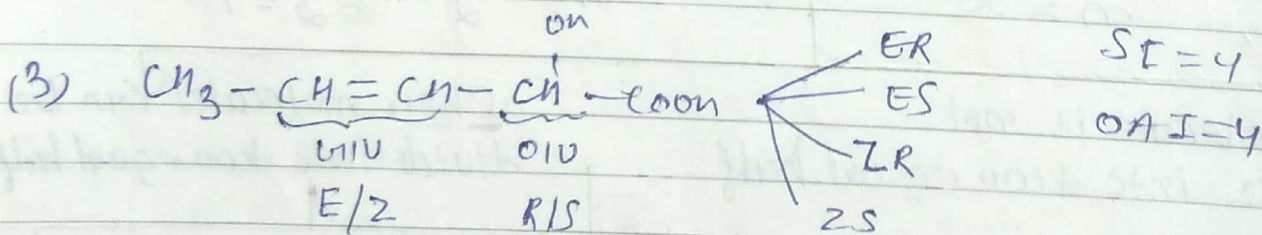 OH
(3) CH₃ - CH = CH - CH - COOH
GIU OIU
E/Z R/S
ER
ES
ZR
ZS
SI = 4
OAI = 4